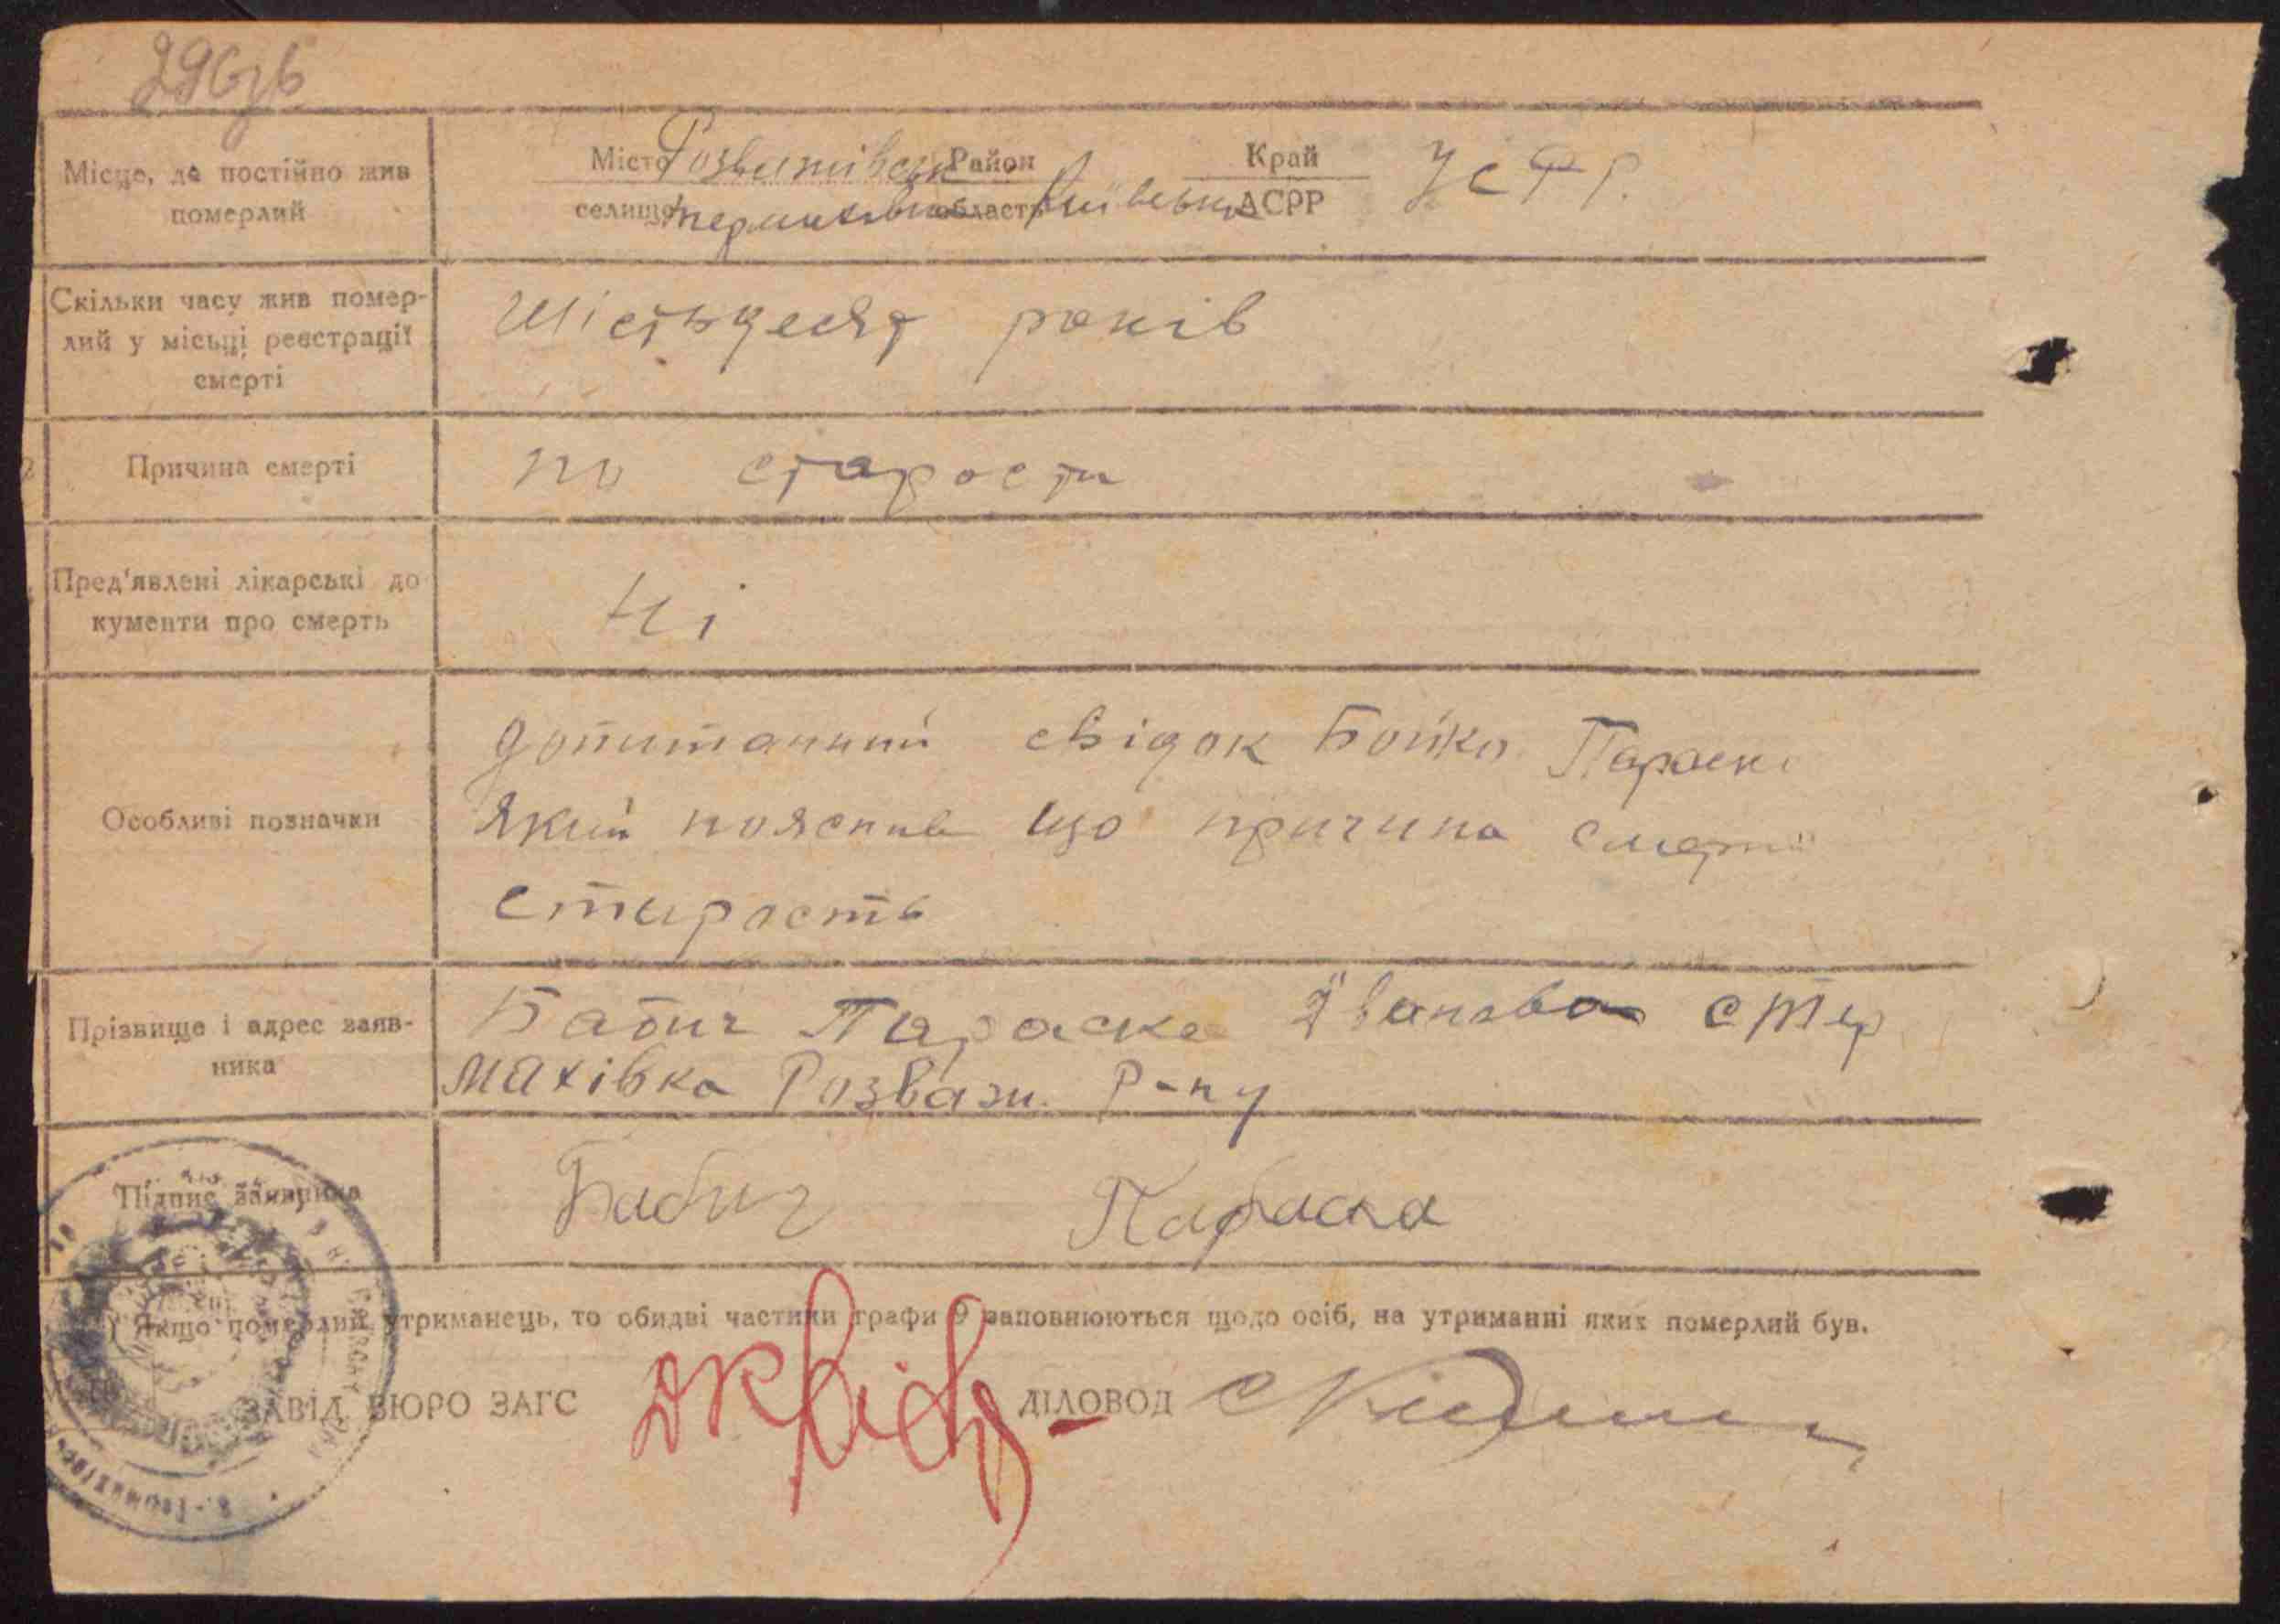 296зв
Місце, де постійно жив
померлий
Місто Район Край УСРР.
селище область Київська АСРР
Скільки часу жив помер-
лий у місьці реєстрації
смерті
Шістьдесят років
Причина смерті
по старости
Пред'явлені лікарські до
кументи про смерть
Ні
Особливі позначки
допитанний свідок Бойко
Який пояснив що причина смерті
старость
Прізвище і адрес заяв-
ника
Бабич Параска Івановна с Тер
махівка Розваж. Р-ну
Підпис заявника
Бабич Параска
Якщо померлий утриманець, то обидві частини графи 9 заповнюються щодо осіб, на утриманні яких померлий був.
ЗАВІД. БЮРО ЗАГС ДІЛОВОД